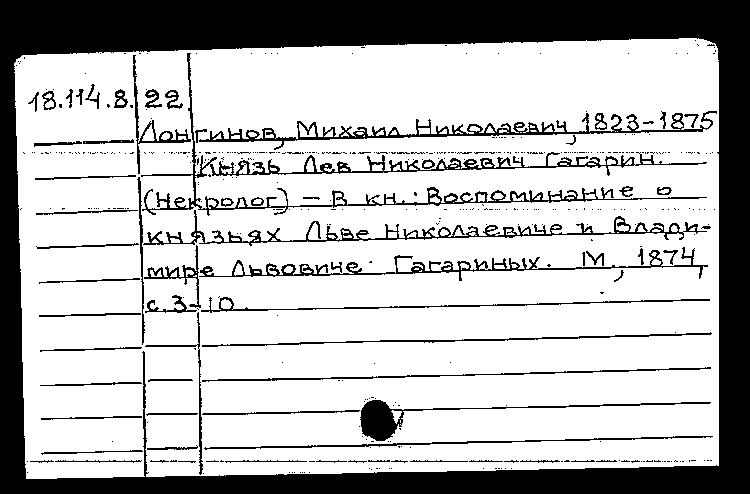 18.114.8. 22
Лонгинов, Михаил Николаевич, 1823-1875
Князь Лев Николаевич Гагарин.
(Некролог) – В кн.: Воспоминание о
князьях Льве Николаевиче и Влади-
мире Львовиче Гагариных. М., 1874,
с. 3-10.